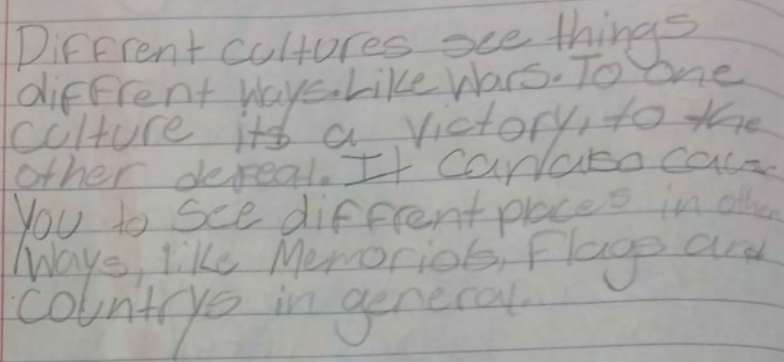 Diffrent cultures see things
diffrent ways. Like Wars. To one
culture its a victory, to the
other defeat. It can also cause
you to see diffrent places in other
Ways, like Memorials, Flags and
countrys in general.